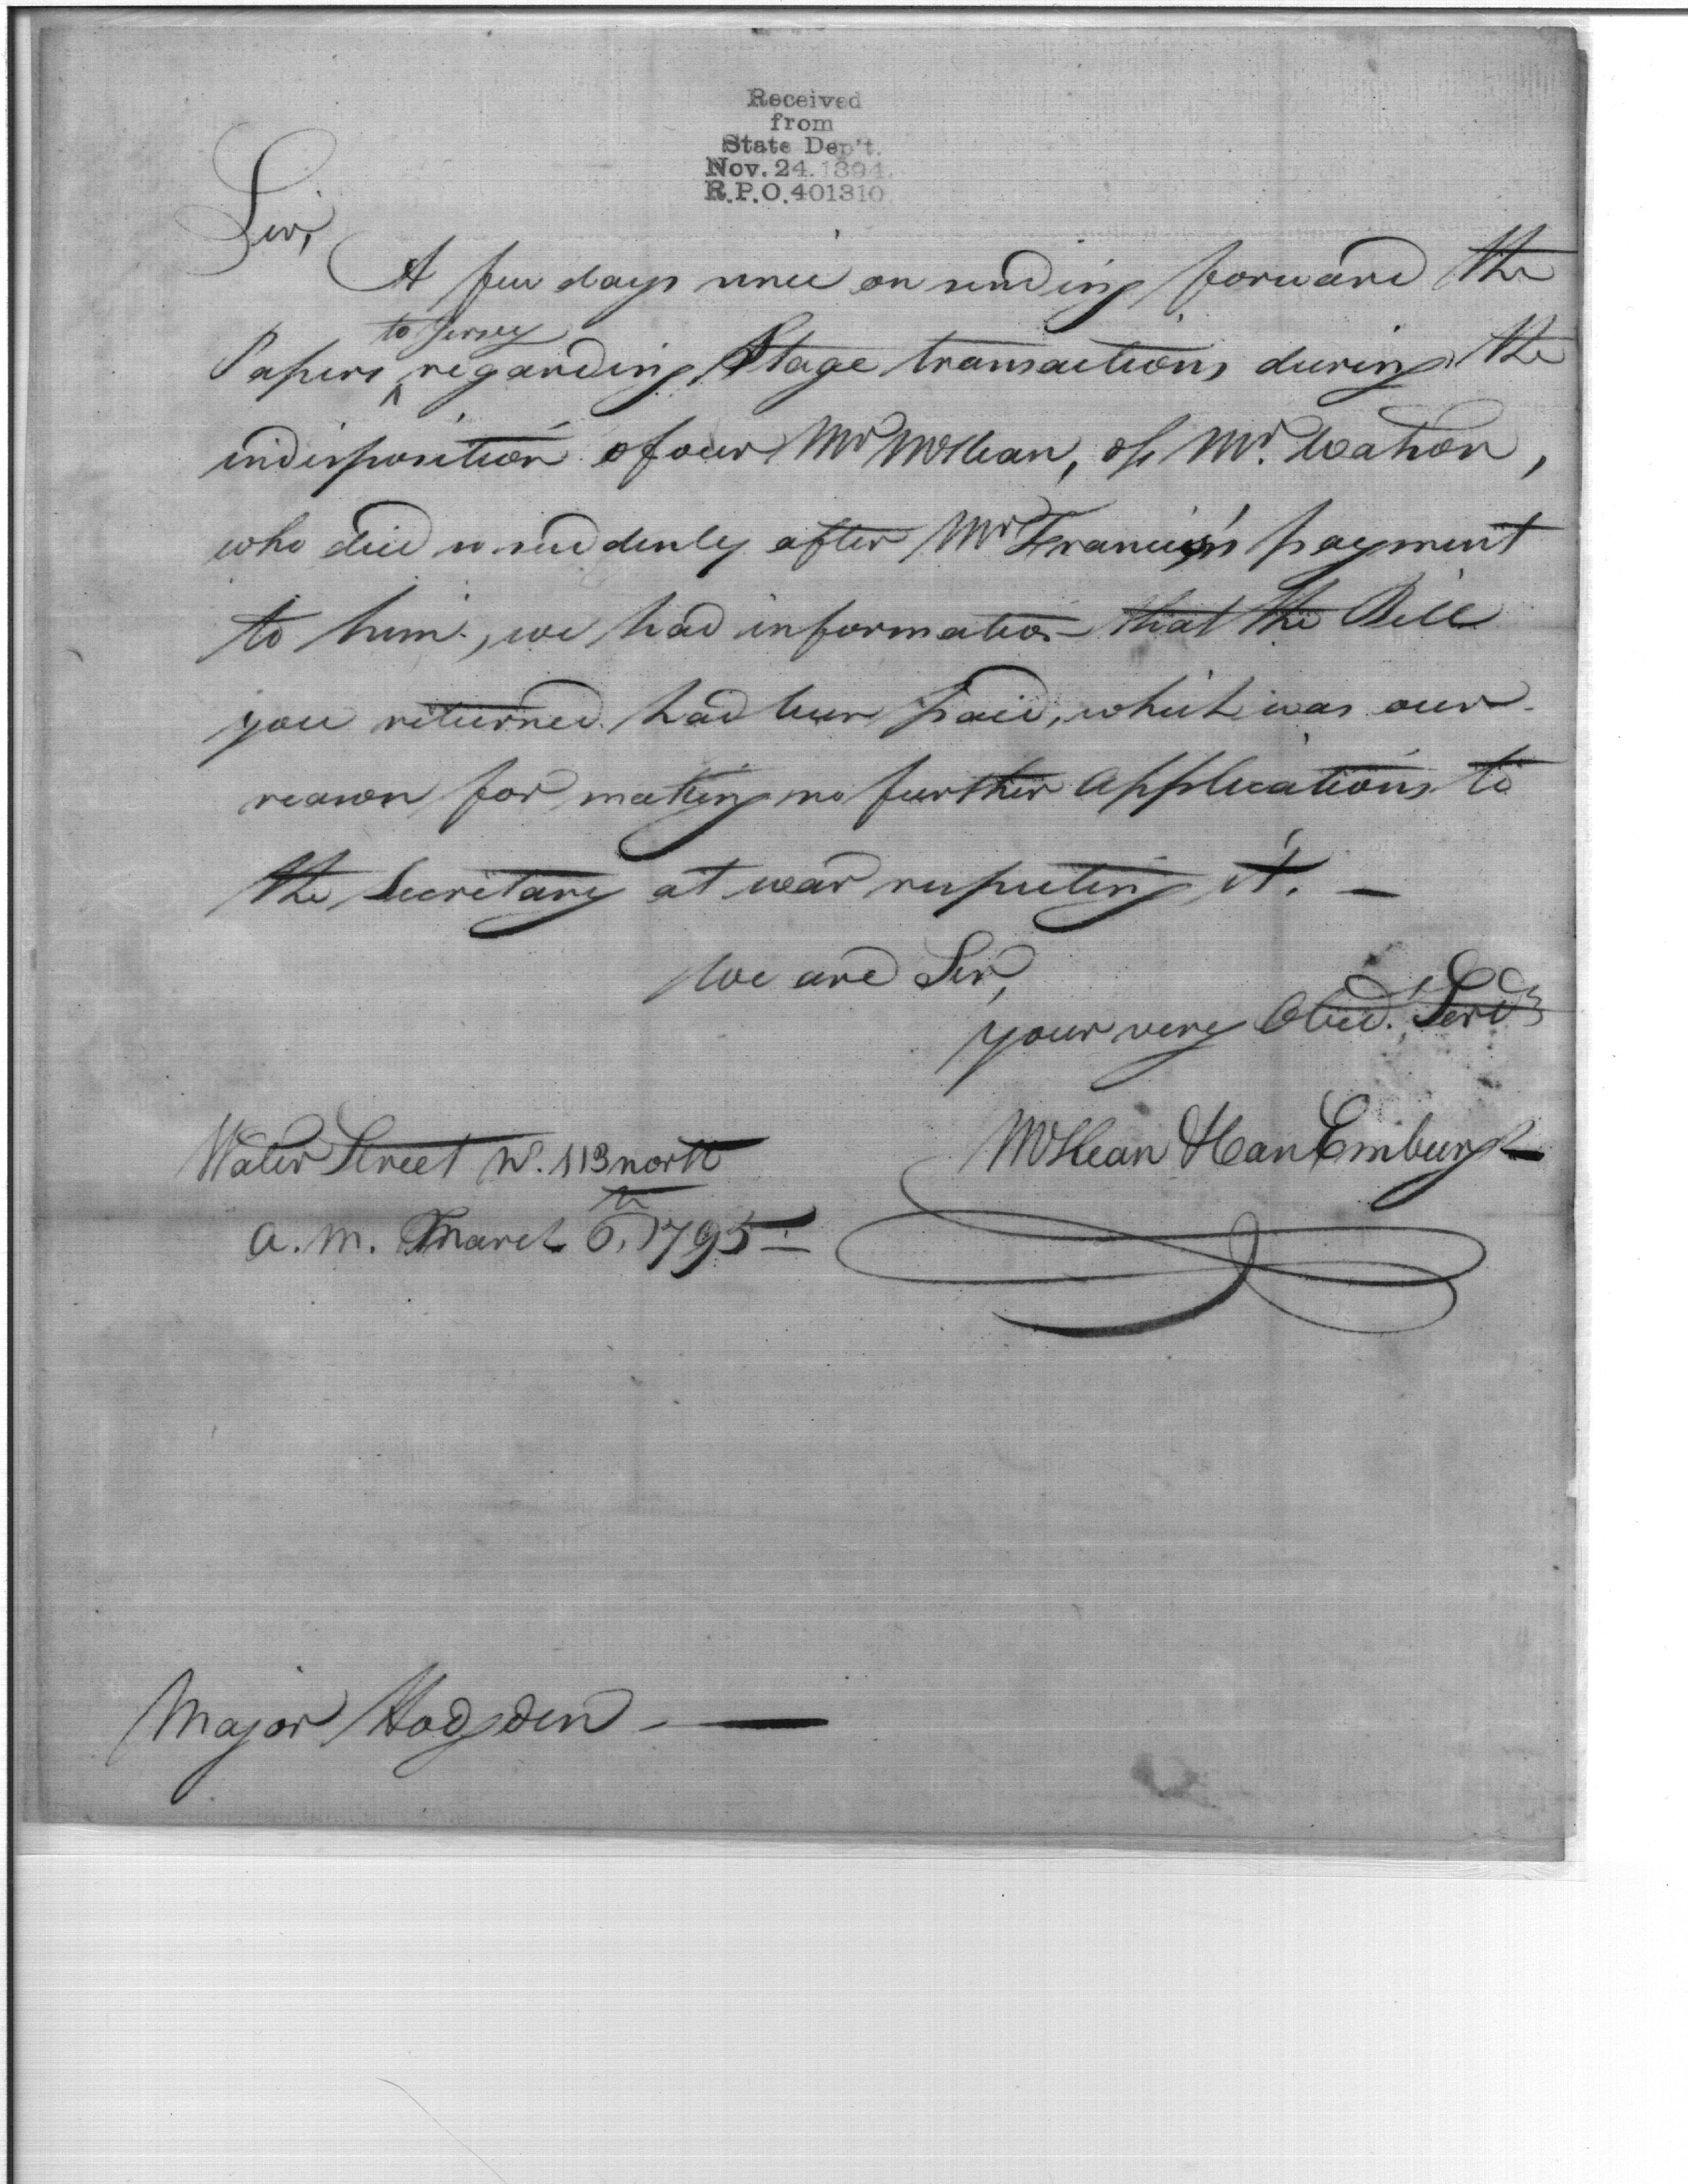 Received
from
State Dep't.
Nov. 24. 1894.
R.P.O. 401310
Sir,
A few days since on sending forward the
to Jersey
Papers ^ regarding Stage transactions during the
indisposition of our Mr. McKean, of Mr. Watson,
who died so suddenly after Mr. Francis's payment
to him, we had information that the Bill
you returned had been paid, which was our
reason for making no further Applications to
the Secretary at war respecting it. —
We are Sir,
your very Obed. Servts
McKean & Van Emburgh
Water Street No. 113 north
A.M. March 6th, 1795
Major Hodgden —